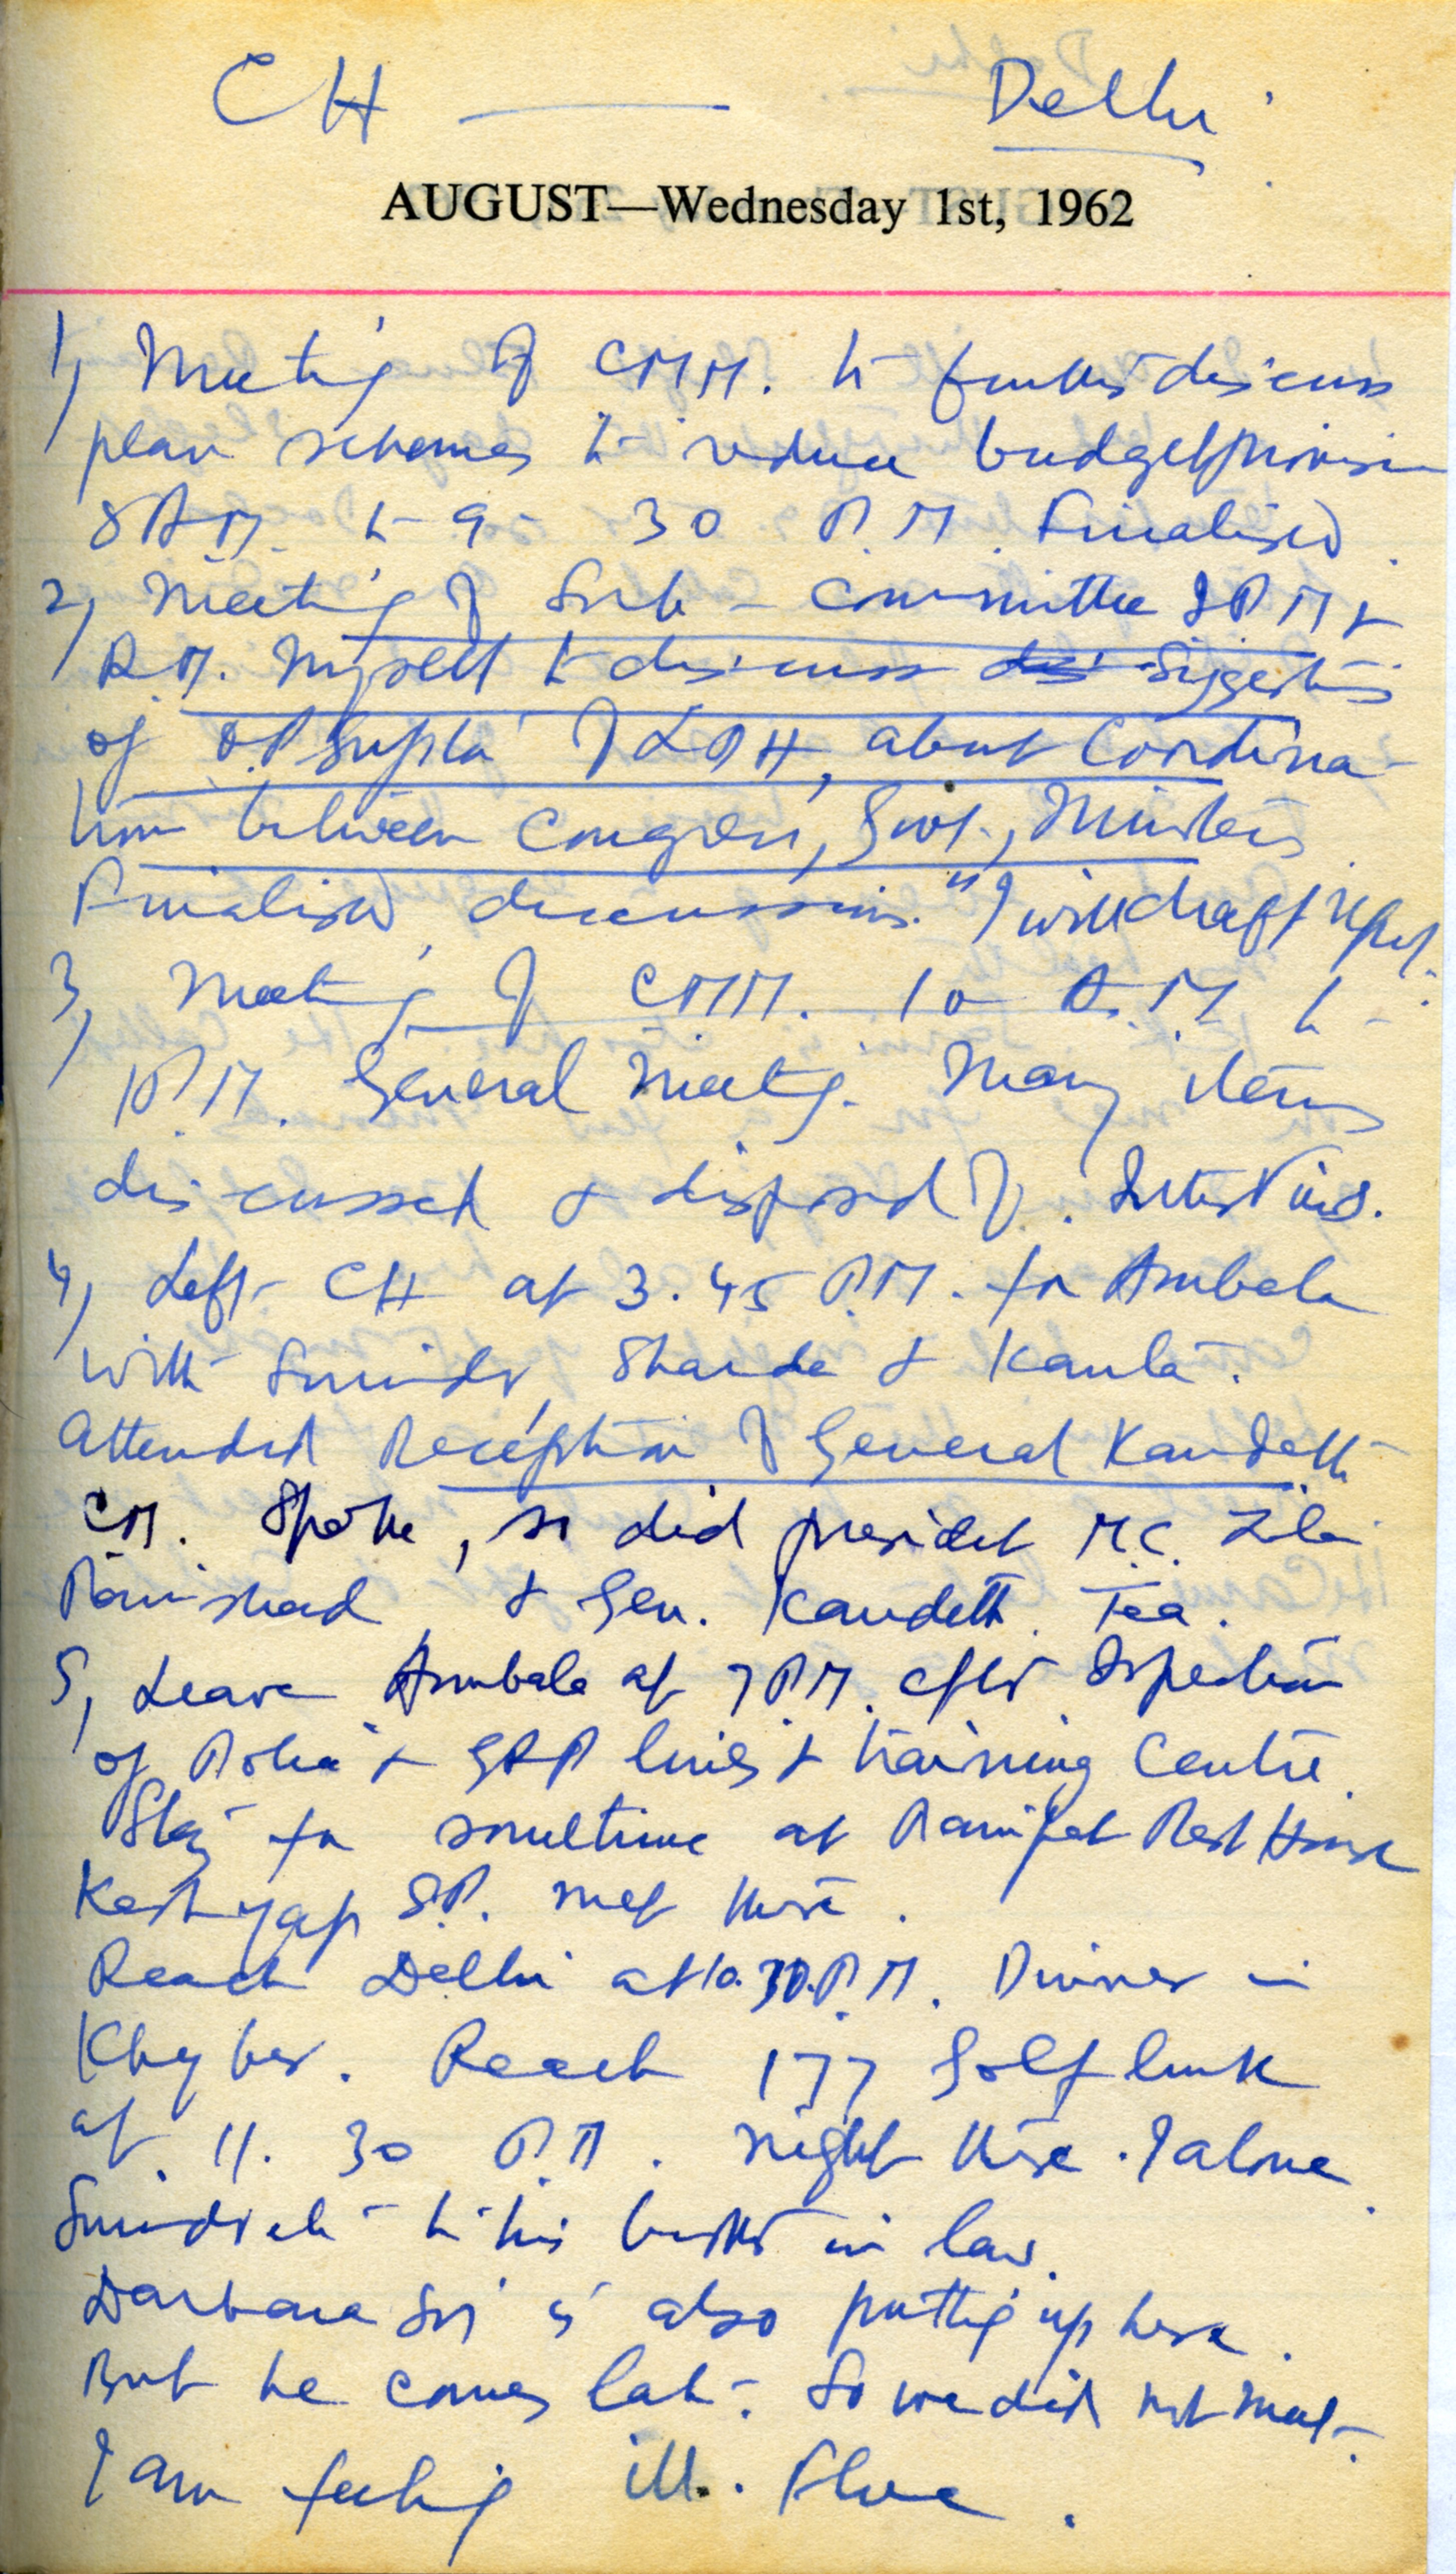 CH — Delhi
AUGUST—Wednesday 1st, 1962
1, Meeting of CMM. to further discuss
plan schemes to reduce budget provision
8 AM. to 9-30 P.M. Finalised.
2, Meeting of Sub-Committee IPM &
R.M. Myself to discuss suggestions
of about Coordina-
tion between Congress, Govt., Ministers.
Finalised discussions. "I will draft report.
3, Meeting of CMM. 10 A.M. to
1 P.M. General Meeting. Many items
discussed & disposed of. Interviews.
4, Left CH at 3.45 P.M. for Ambala
with Surinder, Sharda & Kanta.
Attended Reception of General Kandeth
CM. Spoke, so did president M.C. Zila
Parishad & Gen. Kandeth. Tea.
5, Leave Ambala at 7 PM. after Inspection
of Police & lines & training Centre.
Stay for sometime at Panipat Rest House
Kashyap S.P. met there.
Reach Delhi at 10.30 P.M. Dinner in
Khyber. Reach 177 Golf link
at 11.30 P.M. Night there. I alone.
Surinder to his brother in law.
Darbara is also putting up here.
But he comes late. So we did not meet.
I am feeling ill. Flue.